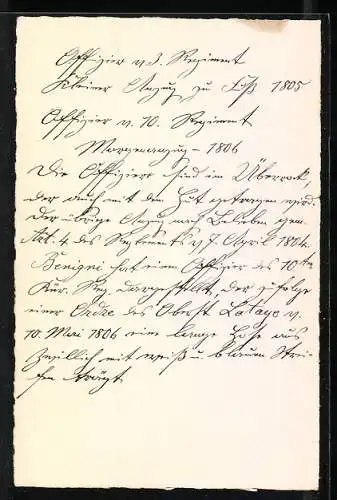 Offizier v. 3. Regiment
Kleiner Anzug zu Fuß 1805
Offizier v. 10. Regiment
Morgenanzug - 1806
Die Offiziere sind im Überrock,
der auch mit dem Hut getragen wird.
Der übrige Anzug nach Belieben gem.
Art. 4 des Reglements v. 7. April 1804.
Benigni hat einen Offizier des 10ten
Kür. Reg. dargestellt, der zufolge
einer Ordre des Oberst Lataye v.
10. Mai 1806 eine lange Hose aus
Zwillich mit weiß u. blauen Strei-
fen trägt